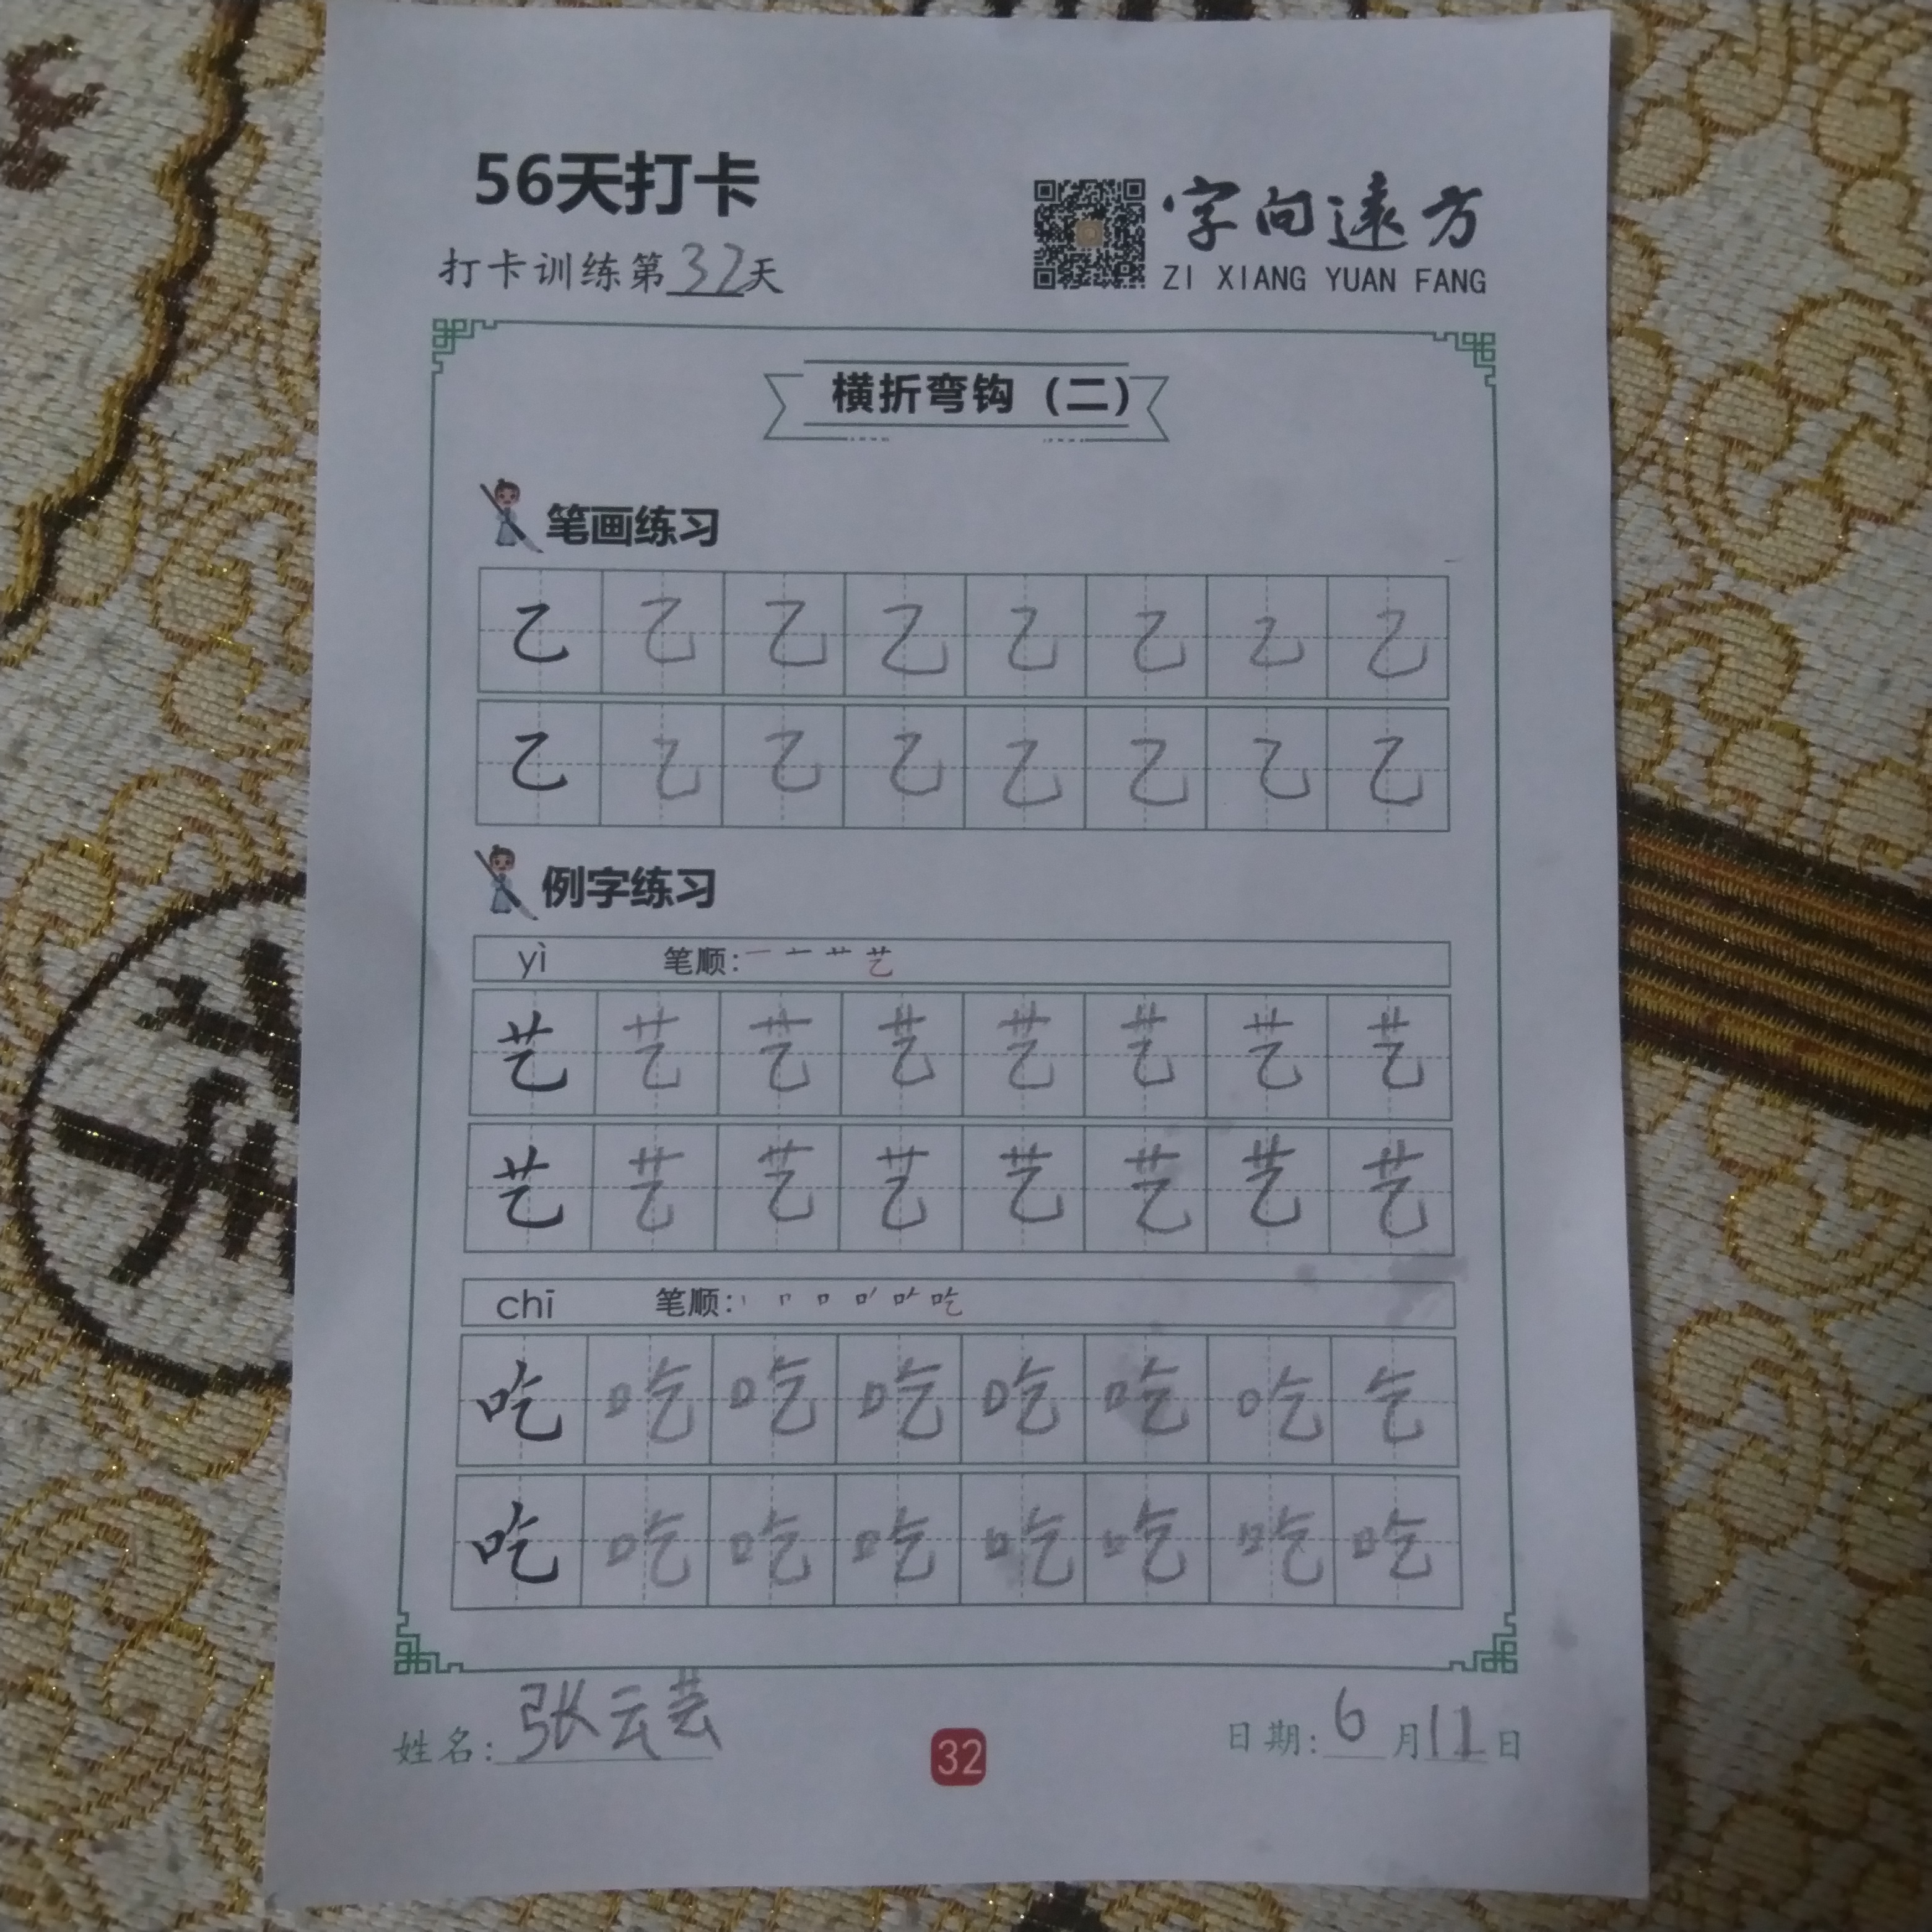 56天打卡
打卡训练第32天
字向远方
ZI XIANG YUAN FANG
横折弯钩（二）
笔画练习
乙 乙 乙 乙 乙 乙 乙 乙
乙 乙 乙 乙 乙 乙 乙 乙
例字练习
yì 笔顺: 一 艹 艺
艺 艺 艺 艺 艺 艺 艺 艺
艺 艺 艺 艺 艺 艺 艺 艺
chī 笔顺: 丨 口 吃
吃 吃 吃 吃 吃 吃 吃 乞
吃 吃 吃 吃 吃 吃 吃 吃
姓名: 张云芸
32
日期: 6月11日